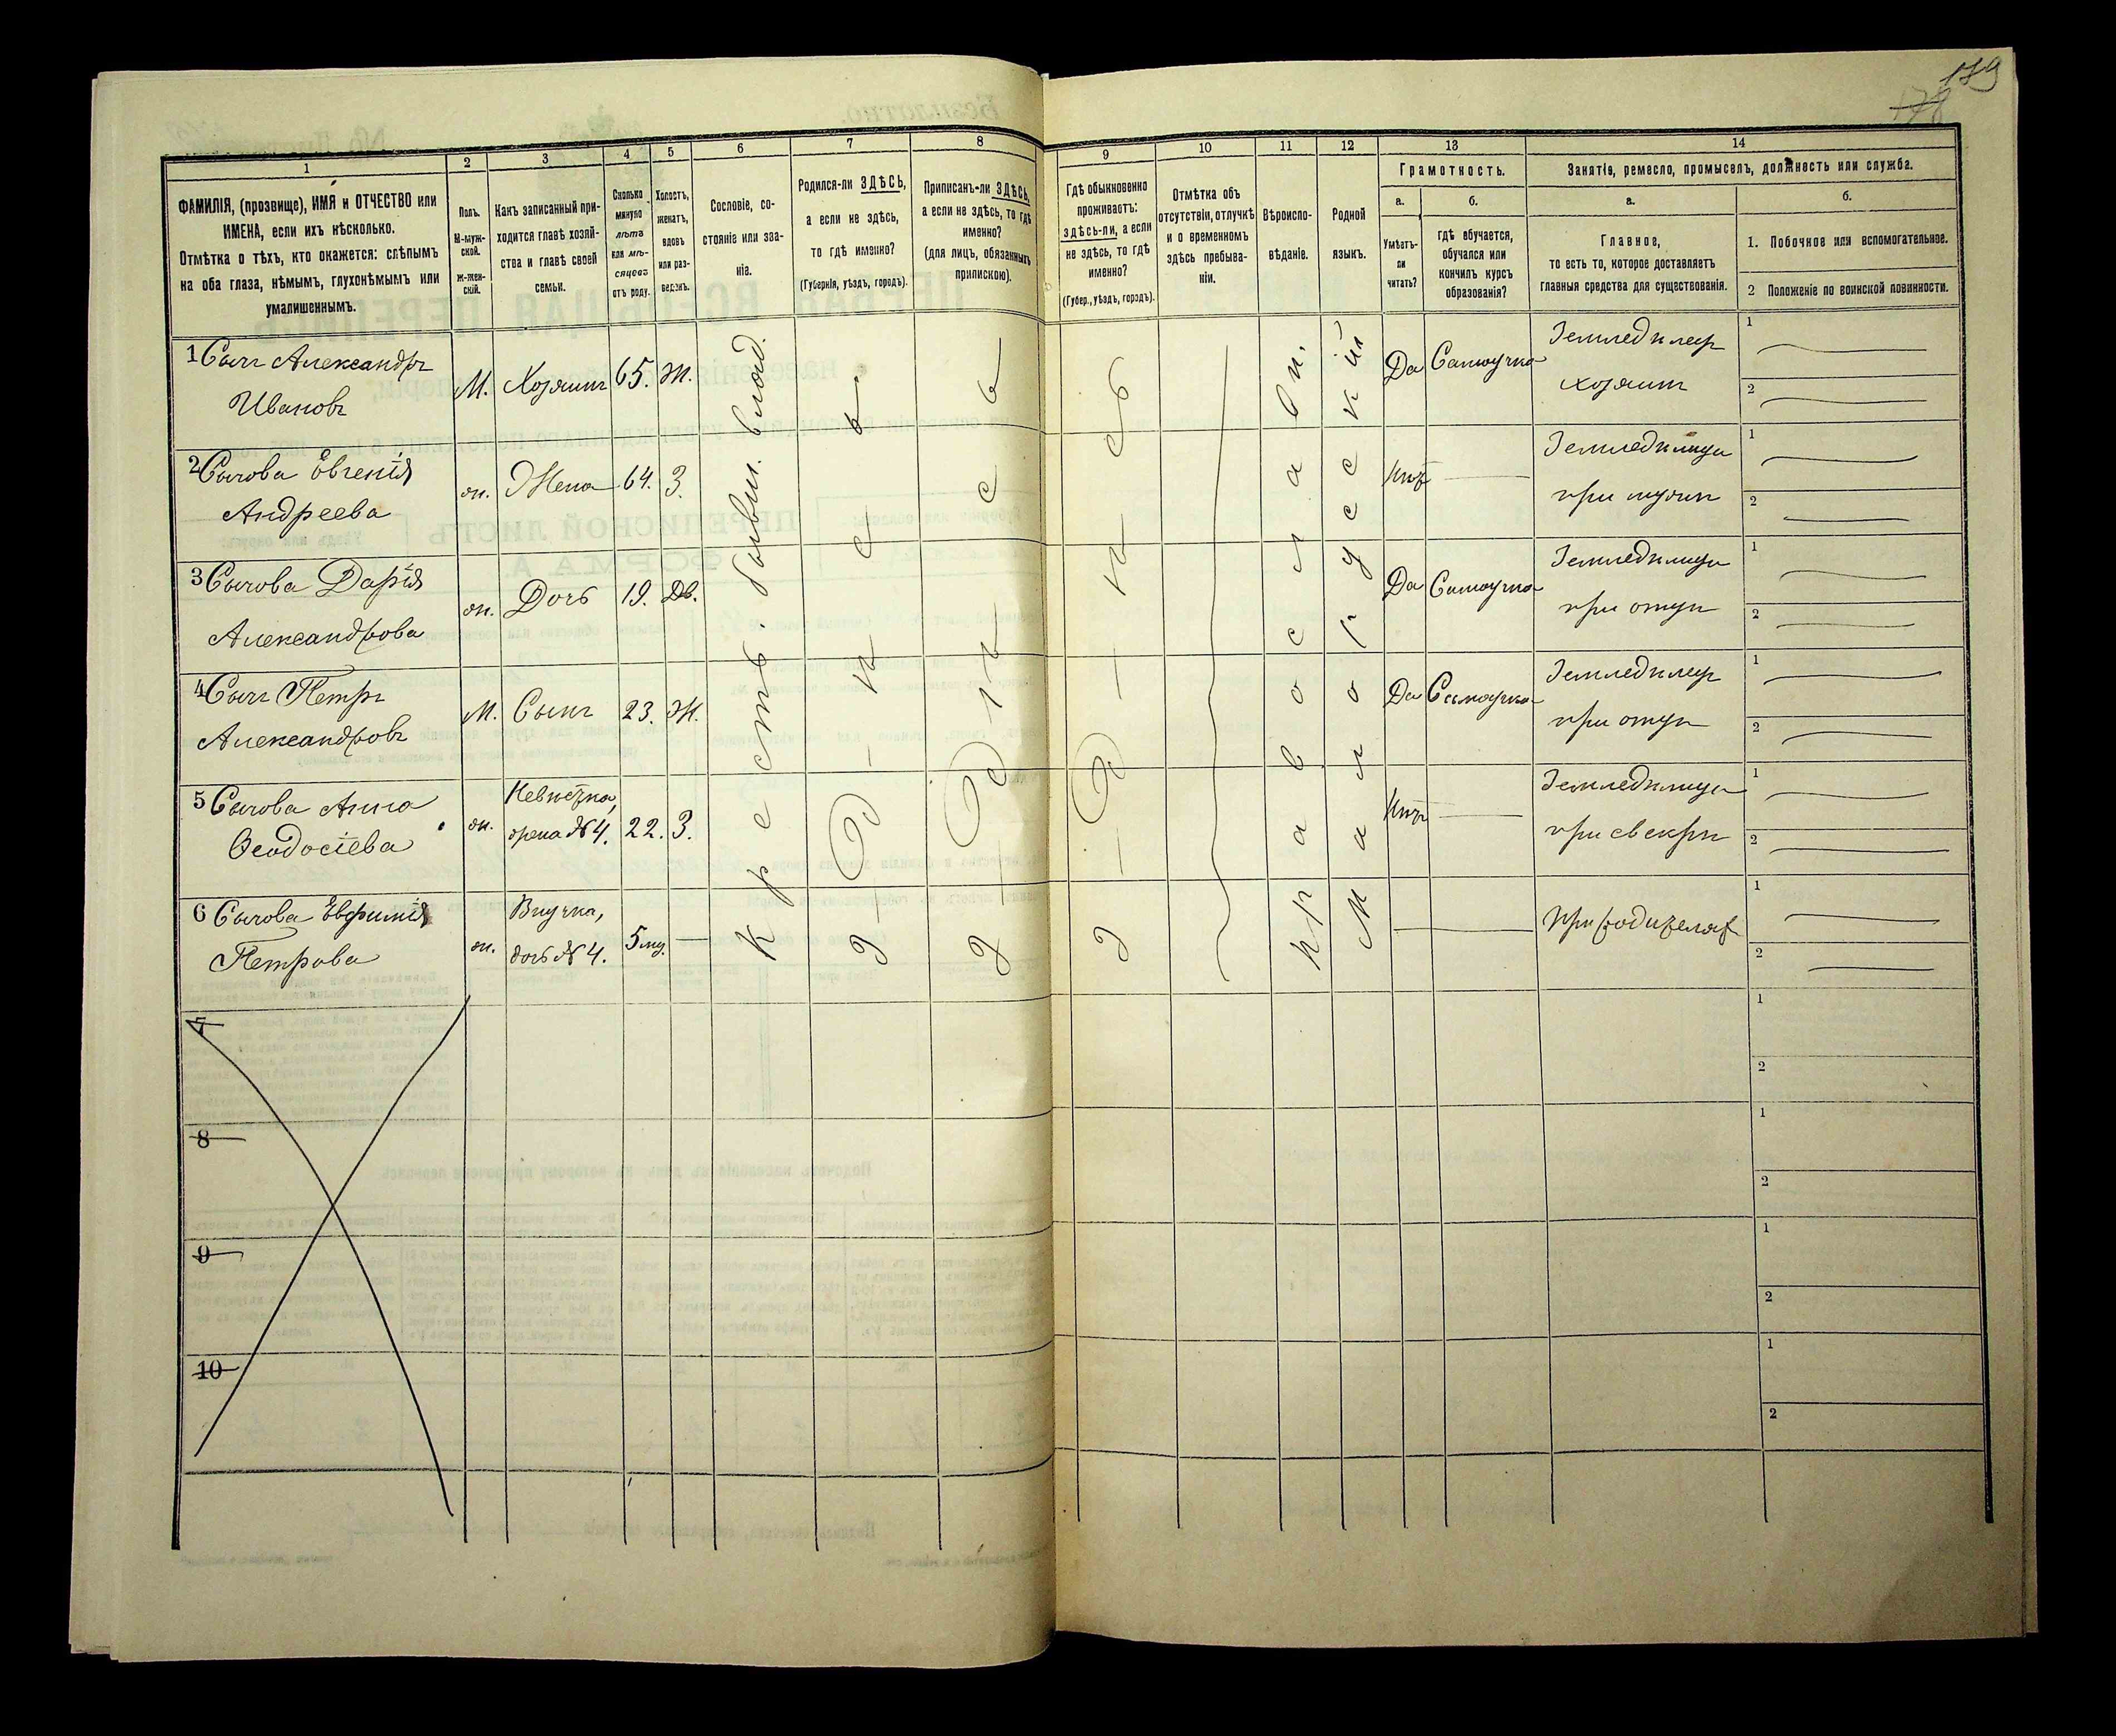 179
178
1
2
3
4
5
6
7
8
9
10
11
12
13
14
ФАМИЛІЯ, (прозвище), ИМЯ и ОТЧЕСТВО или
ИМЕНА, если ихъ нѣсколько.
Отмѣтка о тѣхъ, кто окажется: слѣпымъ
на оба глаза, нѣмымъ, глухонѣмымъ или
умалишеннымъ.
Полъ.
М-муж-
ской.
Ж-жен-
скій.
Какъ записанный при-
ходится главѣ хозяй-
ства и главѣ своей
семьи.
Сколько
минуло
лѣтъ
или мѣ-
сяцевъ
отъ роду.
Холостъ,
женатъ,
вдовъ
или раз-
веденъ.
Сословіе, со-
стояніе или зва-
ніе.
Родился-ли ЗДѢСЬ,
а если не здѣсь,
то гдѣ именно?
(Губернія, уѣздъ, городъ).
Приписанъ-ли ЗДѢСЬ,
а если не здѣсь, то гдѣ
именно?
(для лицъ, обязанныхъ
припискою).
Гдѣ обыкновенно
проживаетъ:
ЗДѢСЬ-ли, а если
не здѣсь, то гдѣ
именно?
(Губер., уѣздъ, городъ).
Отмѣтка объ
отсутствіи, отлучкѣ
и о временномъ
здѣсь пребыва-
ніи.
Вѣроиспо-
вѣданіе.
Родной
языкъ.
Грамотность.
а.
Умѣетъ-
ли
читать?
б.
гдѣ обучается,
обучался или
кончилъ курсъ
образованія?
Занятіе, ремесло, промыселъ, должность или служба.
а.
Главное,
то есть то, которое доставляетъ
главныя средства для существованія.
б.
1. Побочное или вспомогательное.
2 Положеніе по воинской повинности.
1 Сычъ Александръ
Ивановъ
М. Хозяинъ 65. Ж.
Да Самоучка
Земледѣлецъ
хозяинъ
1
2
2 Сычова Евгенія
Андреева
ж. Жена 64. З.
Нѣтъ
Земледѣлица
при мужѣ
1
2
3 Сычова Дарія
Александрова
ж. Дочь 19. Дв.
Да Самоучка
Земледѣлица
при отцѣ
1
2
4 Сычъ Петръ
Александровъ
М. Сынъ 23. Ж.
Да Самоучка
Земледѣлецъ
при отцѣ
1
2
5 Сычова Анна
Ѳеодосіева
ж. Невѣстка,
жена №4. 22. З.
Нѣтъ
Земледѣлица
при свекрѣ
1
2
6 Сычова Евфимія
Петрова
ж. Внучка,
дочь №4. 5 мц.
При родителяхъ
1
2
Крест. бывш. влад.
здѣсь
здѣсь
здѣсь
православн.
Малорусскій
7
1
2
8
1
2
9
1
2
10
1
2